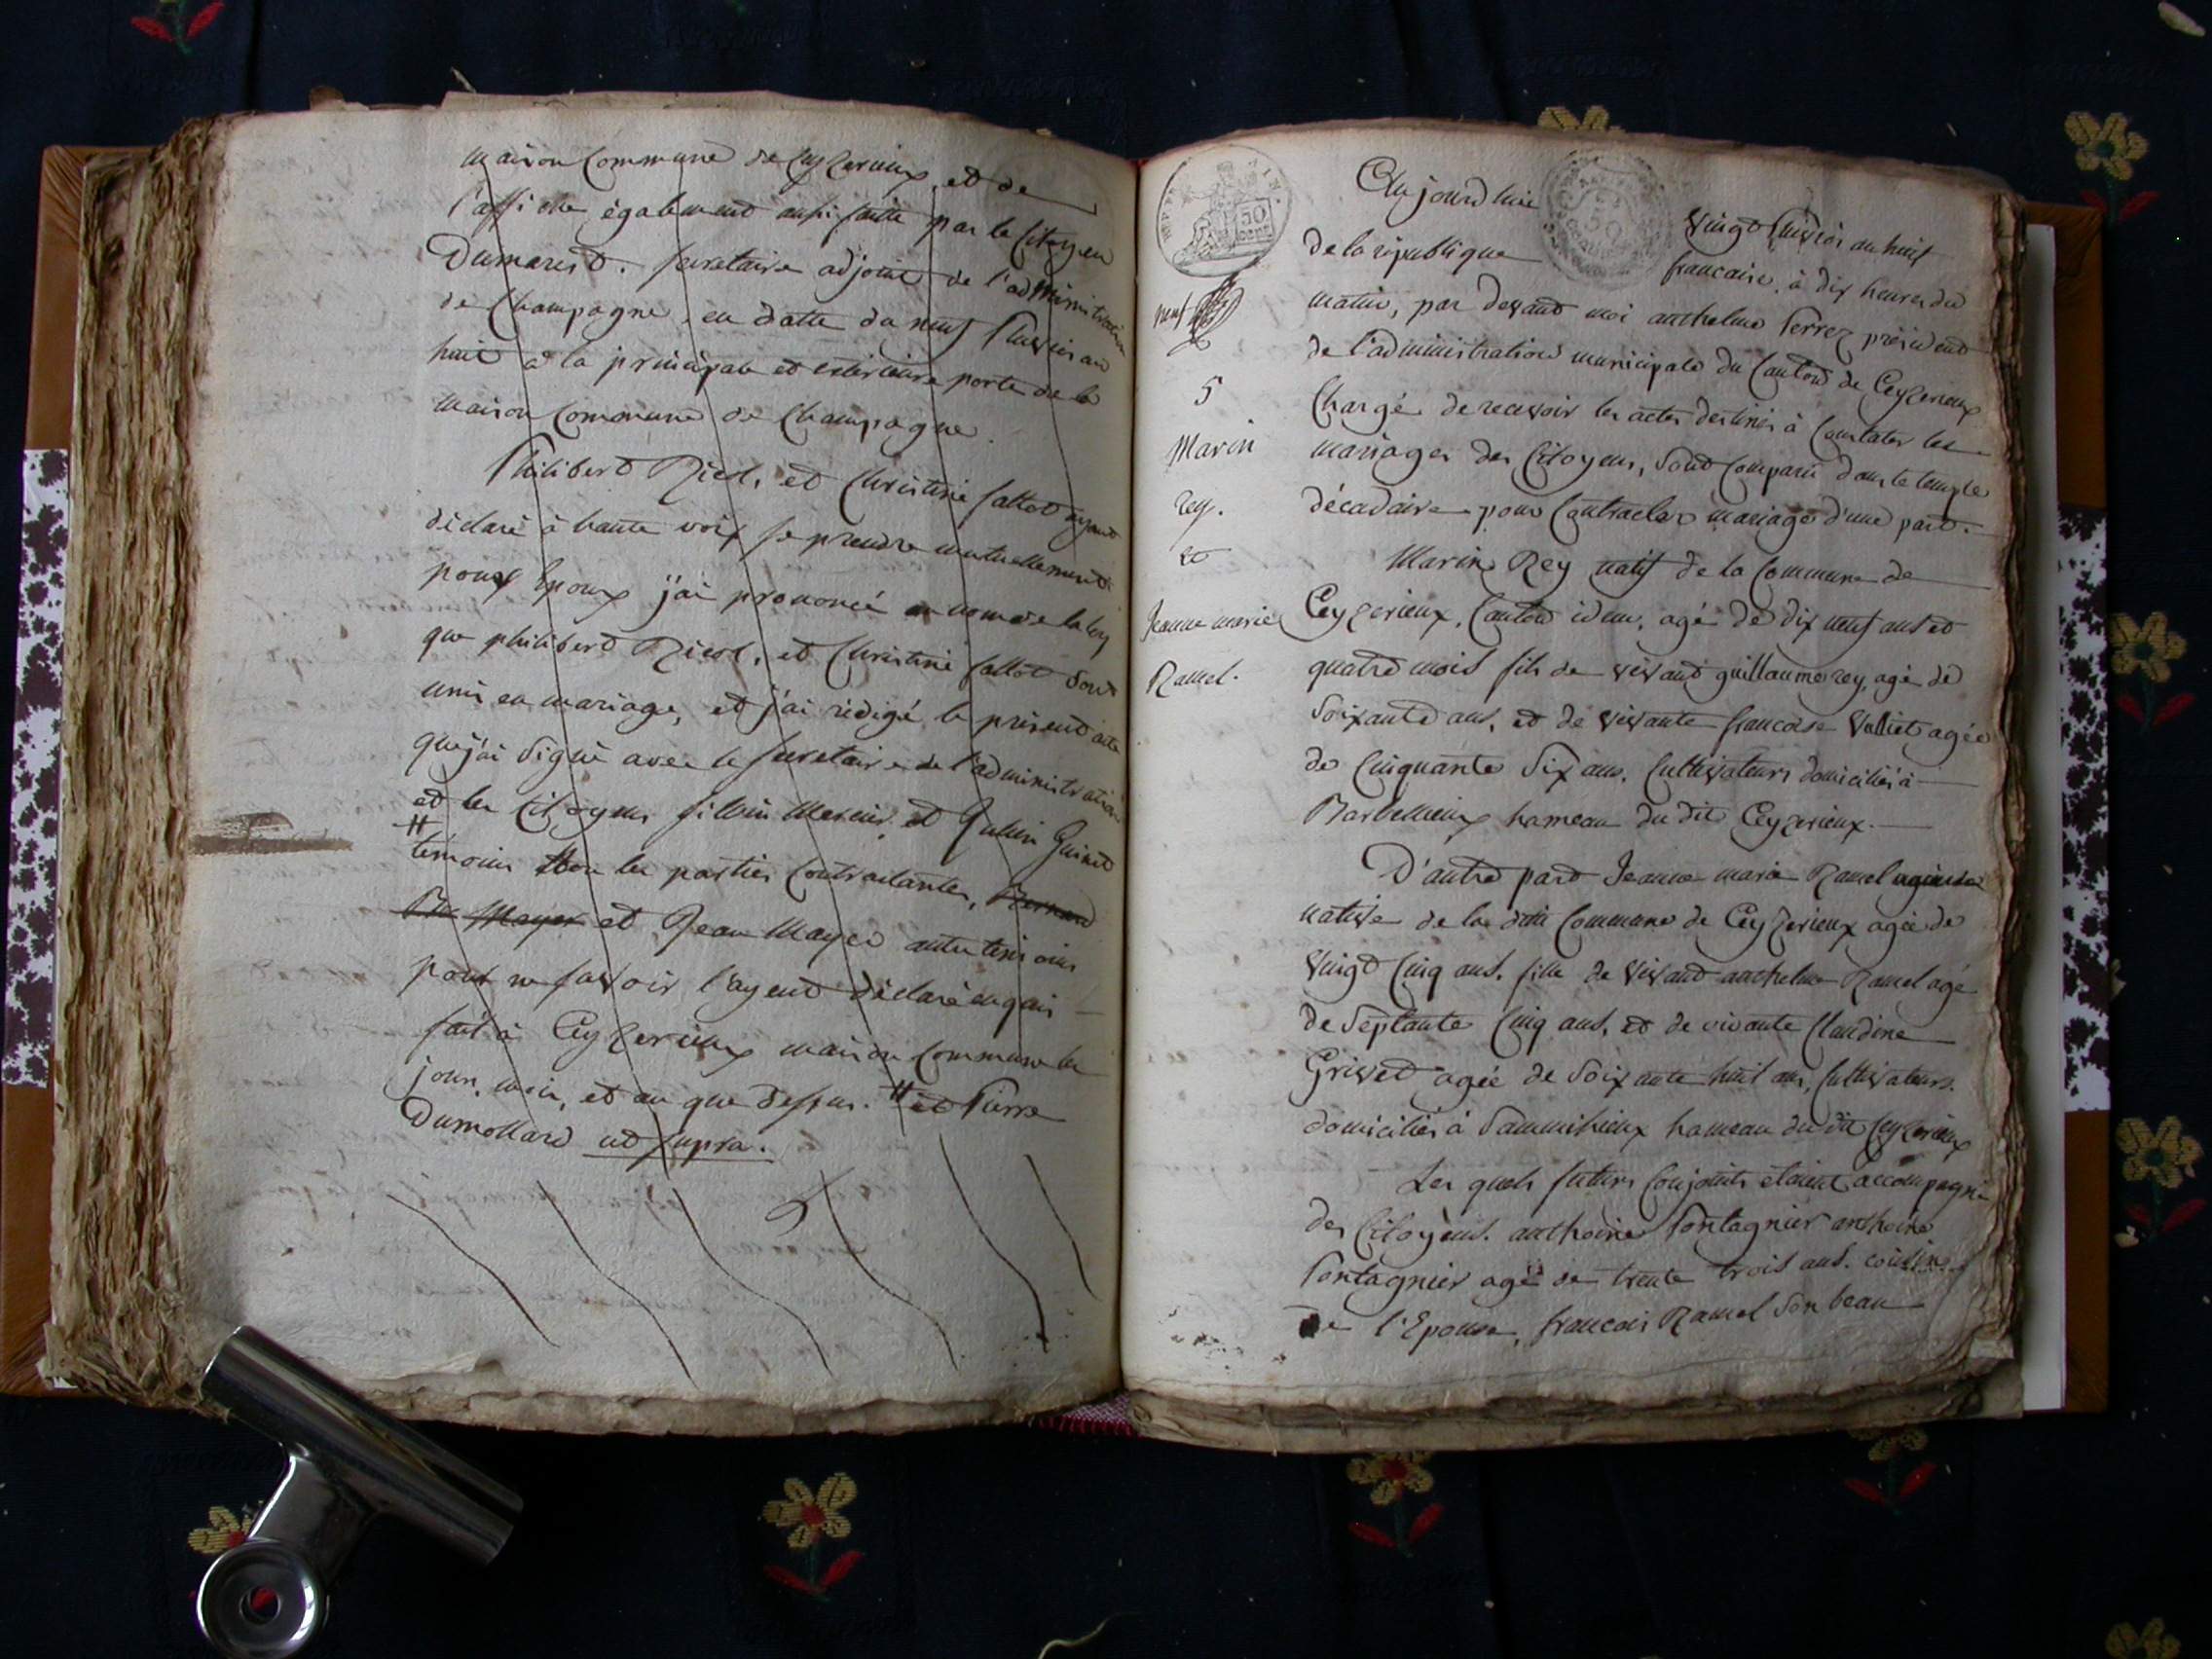 maison Commune de Ceyzerieux, et de
l'affiche également aussi faitte par le Citoyen
Dumarest. secretaire adjoint de l'administration
de Champagne, en datte du neuf Pluvios an
huit à la principale et exterieure porte de la
maison Commune de Champagne.
Philibert et Christine Cattot ayant
déclaré à haute voix se prendre mutuellement
pour Epoux j'ai prononcé au nom de la loy
que philibert et Christine Cattot sont
unis en mariage, et j'ai rédigé le présent acte
que j'ai signé avec le secretaire de l'administration
et les Citoyens Mercier et Guinet
#
témoins non les parties Contractantes, Bernard
Mayer et Jean Mayer autre témoins
pour ne savoir l'ayent déclaré enquis
fait à Ceyzerieux maison Commune les
jour, mois, et an que dessus. # et Pierre
Dumollard ut supra.
50
Aujourd'hui vingt Pluviôs an huit
50
de la république francaise, à dix heures du
neuf
matin, par devant moi anthelme Perrez président
de l'administration municipale du Canton de Ceyzerieux
5
Chargé de recevoir les actes destinés à Constater les
Marin
mariages des Citoyens, sont Comparu dans le temple
rey.
décadaire pour Contracter mariage d'une part.
et
Marin Rey natif de la Commune de
Jeanne marie
Ceyzerieux, Canton idem, agé de dix neuf ans et
Ramel.
quatre mois fils de vivant guillaume rey, agé de
Soixante ans, et de vivante francoise Valliet agée
de Cinquante Six ans, Cultivateurs domiciliés à
hameau du dit Ceyzerieux.
D'autre part Jeanne marie Ramel
native de la ditte Commune de Ceyzerieux agée de
vingt Cinq ans, fille de vivant anthelme Ramel agé
de Septante Cinq ans, et de vivante Claudine
Grivet agée de Soixante huit ans, Cultivateurs.
domiciliés à hameau du dit Ceyzerieux
Les quels futurs Conjoints étoient accompagné
des Citoyens. anthoine Pontagnier anthoine
Pontagnier agé de trente trois ans. cousin
De l'Epouse, francois Ramel Son beau